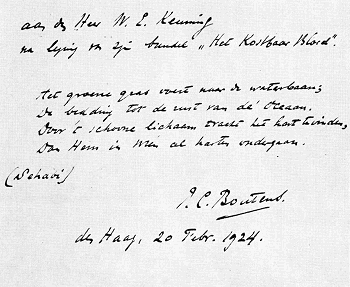 aan den Heer W. E. Keuning
na lezing van zijn bundel „Het Kostbaar Bloed".
Het groene gras voert naar de waterbaan;
De bedding tot de rust van de Oceaan.
Door 't schoone lichaam tracht het hart te vinden,
Den Hem in Wien al harten ondergaan.
(Dehavi)
P. C. Boutens.
den Haag, 20 Febr. 1924.